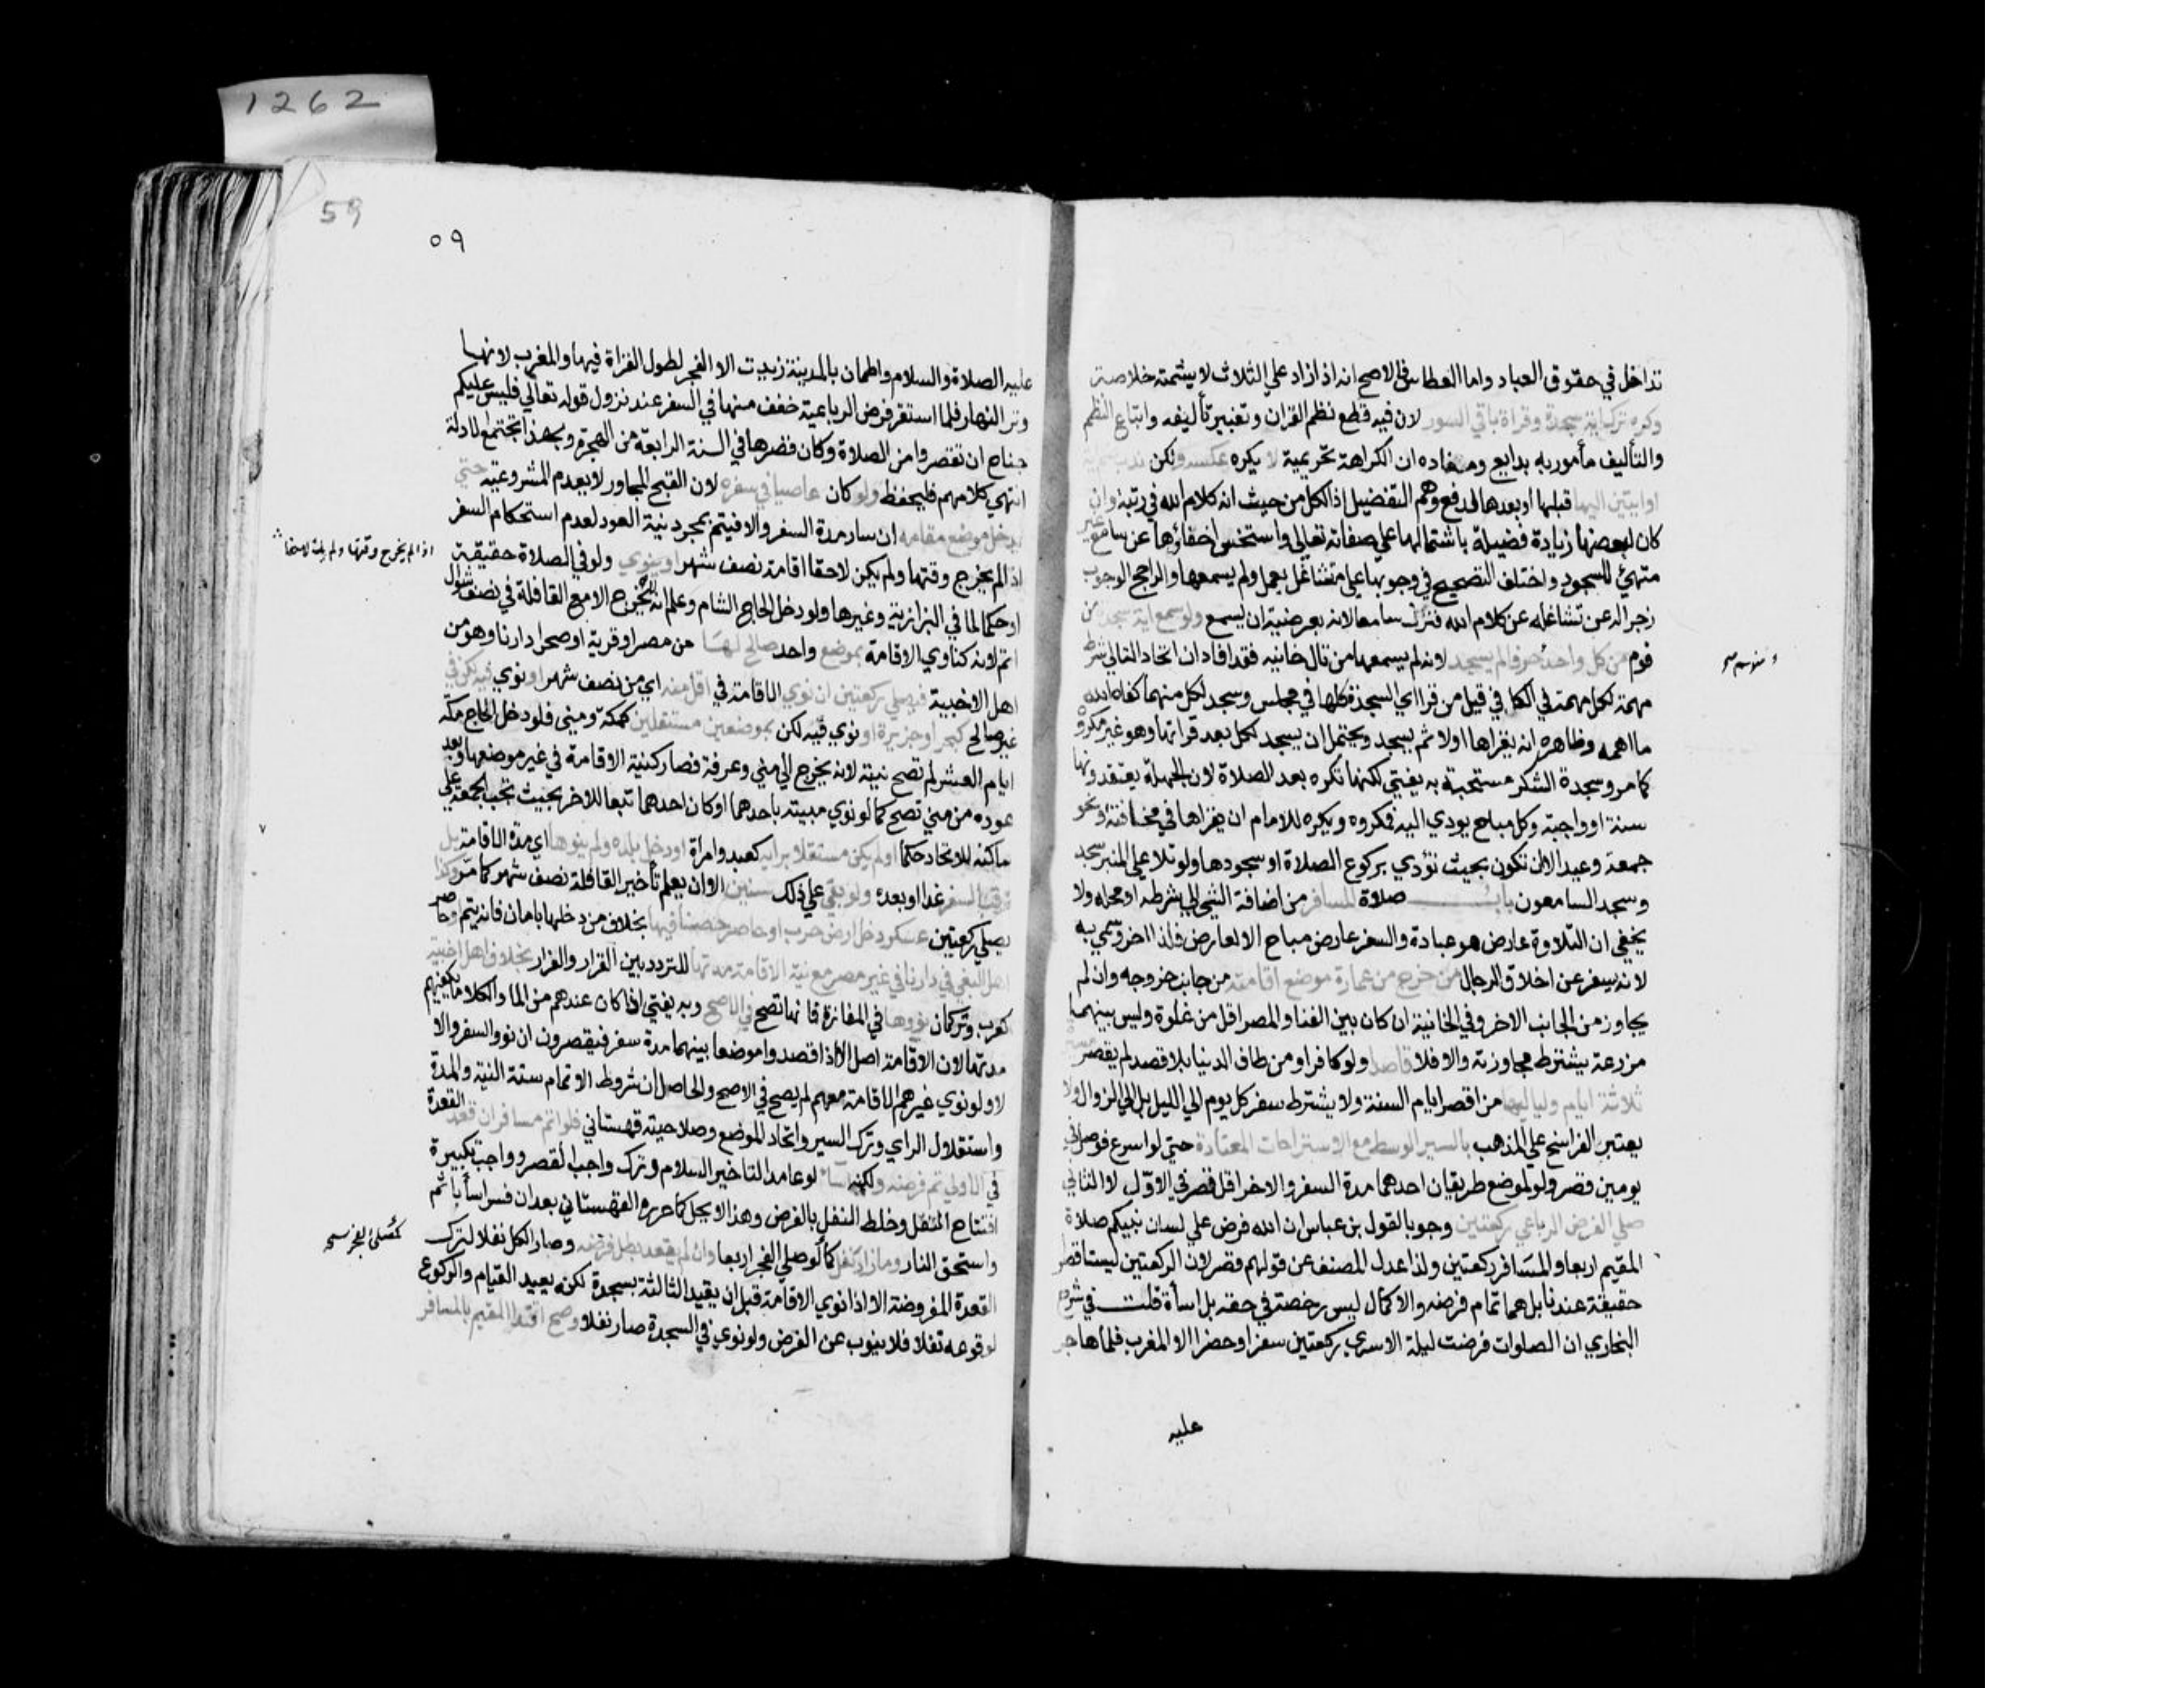 1262
59
٥٩
تداخل في حقوق العباد واما العطاس فالاصح انه اذا زاد علي الثلاث لا يشمته خلاصة
وكره ترك اية سجدة وقراة باقي السور لان فيه قطع نظم القران وتغيير تأليفه واتباع النظم
والتأليف مأمور به بدايع ومفاده ان الكراهة تحريمية لا يكره عكسه ولكن ندب ضم اية
او ايتين اليها قبلها او بعدها لدفع وهم التفضيل اذ الكل من حيث انه كلام الله في رتبة وان
كان لبعضها زيادة فضيلة باشتمالها علي صفاته تعالي واستحسن اخفاؤها عن سامع غير
متهيئ للسجود واختلف التصحيح في وجوبها علي متشاغل بعمل ولم يسمعها والراجح الوجوب
زجرا له عن تشاغله عن كلام الله فنزل سامعا لانه بعرضية ان يسمع ولو سمع اية سجدة من
قوم من كل واحد حرفا لم يسجد لانه لم يسمعها من تال خانيه فقد افاد ان اتحاد التالي شرط
مهمة لكل مهمة في الكافي قيل من قرا اي السجدة كلها في مجلس وسجد لكل منها كفاه الله
ما اهمه وظاهره انه يقراها اولا ثم يسجد ويحتمل ان يسجد لكل بعد قراتها وهو غير مكروه
كما مر وسجدة الشكر مستحبة به يفتي لكنها تكره بعد الصلاة لان الجهلة يعتقدونها
سنة او واجبة وكل مباح يودي اليه فمكروه ويكره للامام ان يقراها في مخافتة ونحو
جمعة وعيد الا ان تكون بحيث تؤدي بركوع الصلاة او سجودها ولو تلا علي المنبر سجد
وسجد السامعون باب صلاة المسافر من اضافة الشي الي شرطه او محله ولا
يخفي ان التلاوة عارض هو عبادة والسفر عارض مباح الا لعارض فلذا اخر وسمي به
لانه يسفر عن اخلاق الرجال من خرج من عمارة موضع اقامته من جانب خروجه وان لم
يجاوز من الجانب الاخر وفي الخانية ان كان بين الفنا والمصر اقل من غلوة وليس بينهما
مزرعة يشترط مجاوزته والا فلا قاصدا ولو كافرا ومن طاف الدنيا بلا قصد لم يقصر
ثلاثة ايام ولياليها من اقصر ايام السنة ولا يشترط سفر كل يوم الي الليل بل الي الزوال ولا
يعتبر الفراسخ علي المذهب بالسير الوسط مع الاستراحات المعتادة حتي لو اسرع فوصل في
يومين قصر ولو لموضع طريقان احدهما مدة السفر والاخر اقل قصر في الاول لا الثاني
صلي الفرض الرباعي ركعتين وجوبا لقول بن عباس ان الله فرض علي لسان نبيكم صلاة
المقيم اربعا والمسافر ركعتين ولذا عدل المصنف عن قولهم قصر لان الركعتين ليستا قصرا
حقيقة عندنا بل هما تمام فرضه والاكمال ليس رخصة في حقه بل اساة قلت في شرح
البخاري ان الصلوات فرضت ليلة الاسري ركعتين سفرا وحضرا الا المغرب فلما هاجر
عليه
عليه الصلاة والسلام واطمان بالمدينة زيدت الا الفجر لطول القراة فيها والمغرب لانها
وتر النهار فلما استقر فرض الرباعية خفف منها في السفر عند نزول قوله تعالي فليس عليكم
جناح ان تقصروا من الصلاة وكان قصرها في السنة الرابعة من الهجرة وبهذا تجتمع الادلة
انتهي كلامهم فليحفظ ولو كان عاصيا في سفره لان القبح المجاور لا يعدم المشروعية حتي
يدخل موضع مقامه ان سار مدة السفر والا فيتم بمجرد نية العود لعدم استحكام السفر
اذا لم يخرج وقتها ولم يكن لاحقا اقامة نصف شهر او ينوي ولو في الصلاة حقيقة
او حكما لما في البزازية وغيرها ولو دخل الحاج الشام وعلم انه لا يخرج الا مع القافلة في نصف شوال
اتم لانه كناوي الاقامة بموضع واحد صالح لها من مصر او قرية او صحرا دارنا وهو من
اهل الاخبية فيصلي ركعتين ان نوي الاقامة في اقل منه اي من نصف شهر او نوي فيه لكن في
غير صالح كبحر او جزيرة او نوي فيه لكن بموضعين مستقلين كمكة ومني فلو دخل الحاج مكة
ايام العشر لم تصح نيته لانه يخرج الي مني وعرفة فصار كنية الاقامة في غير موضعها وبعد
عوده من مني تصح كما لو نوي مبيته باحدهما او كان احدهما تبعا للاخر بحيث تجب الجمعة علي
ساكنه للاتحاد حكما او لم يكن مستقلا برايه كعبد وامراة او دخل بلده ولم ينوها اي مدة الاقامة بل
ترقب السفر غدا او بعده ولو بقي علي ذلك سنين الا ان يعلم تأخير القافلة نصف شهر كما مر وكذا
يصلي ركعتين عسكر دخل ارض حرب او حاصر حصنا فيها بخلاف من دخلها بامان فانه يتم او حاصر
اهل البغي في دارنا في غير مصر مع نية الاقامة مدتها للتردد بين القرار والفرار بخلاف اهل اخبية
كعرب وتركمان نووها في المفازة فانها تصح في الاصح وبه يفتي اذا كان عندهم من الما والكلا ما يكفيهم
مدتها لان الاقامة اصل الا اذا قصدوا موضعا بينهما مدة سفر فيقصرون ان نووا السفر والا
لا ولو نوي غيرهم الاقامة معهم لم يصح في الاصح والحاصل ان شروط الاتمام ستة النية والمدة
واستقلال الراي وترك السير واتحاد الموضع وصلاحيته قهستاني فلو اتم مسافر ان قعد القعدة
في الاولي تم فرضه ولكنه اساء لو عامدا لتاخير السلام وترك واجب القصر وواجب تكبيرة
افتتاح النفل وخلط النفل بالفرض وهذا لا يحل كما حرره القهستاني بعد ان فسر اسأ باثم
واستحق النار وما زاد نفل كما لو صلي الفجر اربعا وان لم يقعد بطل فرضه وصار الكل نفلا لترك
القعدة المفروضة الا اذا نوي الاقامة قبل ان يقيد الثالثة بسجدة لكنه يعيد القيام والركوع
لوقوعه نفلا فلا ينوب عن الفرض ولو نوي في السجدة صار نفلا وصح اقتدا المقيم بالمسافر